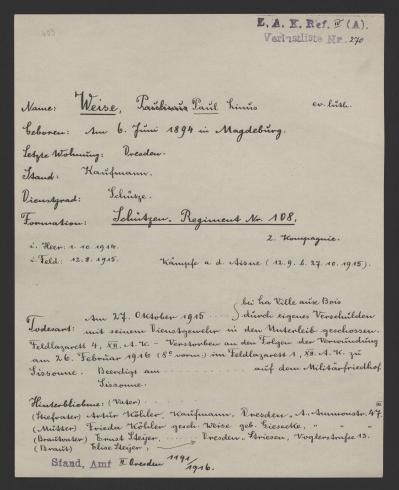 409
Z. A. K. Ref. IV (A).
Verlustliste Nr. 270
Name: Weise, Paul Linus ev. luth.
Geboren: Am 6. Juni 1894 in Magdeburg.
Letzte Wohnung: Dresden.
Stand: Kaufmann.
Dienstgrad: Schütze.
Formation: Schützen-Regiment Nr. 108.
2. Kompagnie.
i. Heer: 1. 10. 1914.
i. Feld: 12. 8. 1915. Kämpfe a. d. Aisne (12. 9. b. 27. 10. 1915).
Am 27. Oktober 1915 bei La Ville aux Bois
durch eigenes Verschulden
Todesart: mit seinem Dienstgewehr in den Unterleib geschossen.
Feldlazarett 4, XII. A. K. - Verstorben an den Folgen der Verwundung
am 26. Februar 1916 (8° vorm.) im Feldlazarett 1, XII. A. K. zu
Sissonne. Beerdigt am auf dem Militärfriedhof
Sissonne.
Hinterbliebene: (Vater)
(Stiefvater) Artur Köhler, Kaufmann, Dresden, A., Ammonstr. 47. III
(Mutter) Frieda Köhler gesch. Weise geb. Giesecke, " " "
(Brautvater) Ernst Steijer, Dresden, Striesen, Voglerstraße 13.
(Braut) Elise Steijer,
Stand. Amt II Dresden 1191/1916.